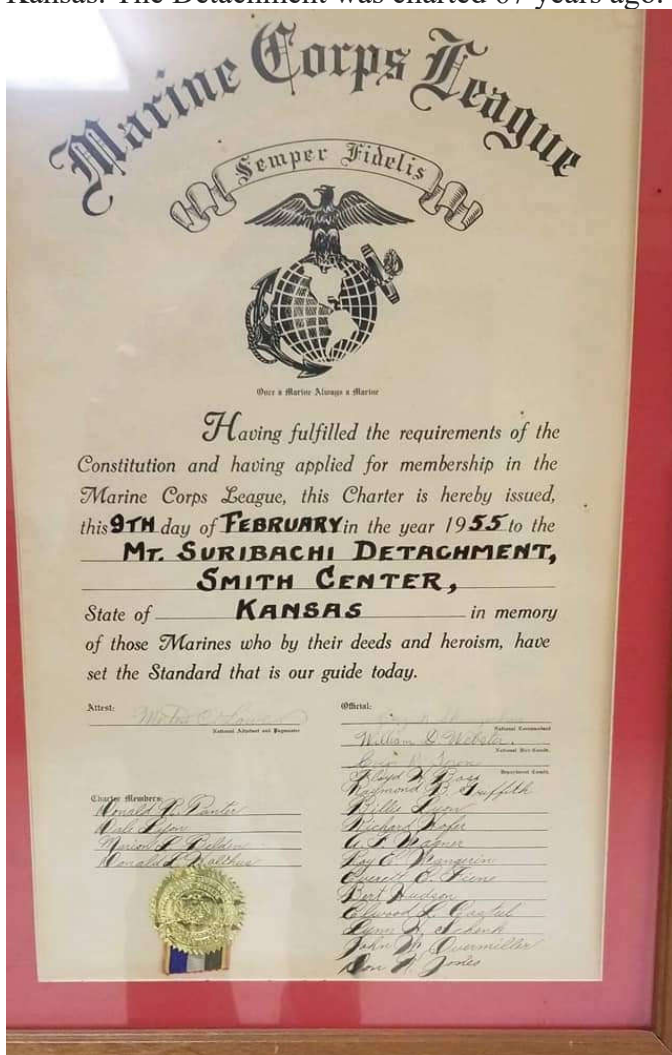 Kansas. The Detachment was charted 67 years ago.
Marine Corps League
Semper Fidelis
Once a Marine Always a Marine
Having fulfilled the requirements of the
Constitution and having applied for membership in the
Marine Corps League, this Charter is hereby issued,
this 9TH day of FEBRUARY in the year 1955 to the
MT. SURIBACHI DETACHMENT,
SMITH CENTER,
State of KANSAS in memory
of those Marines who by their deeds and heroism, have
set the Standard that is our guide today.
Attest:
National Adjutant and Paymaster
Official:
National Commandant
William D. Webster.
National Vice-Comdt.
Department Comdt.
Floyd W. Bass
Raymond B. Griffith
Billie Lyon
Richard Hofer
A. F. Wagner
Roy E. Mangerin
Everett E. Fiene
Bert Hudson
Elwood L. Gastul
Lynn H. Schenk
John W. Overmiller
Don H. Jones
Charter Members:
Donald R. Panter
Dale Lyon
Marion L. Belden
Donald L. Walthus